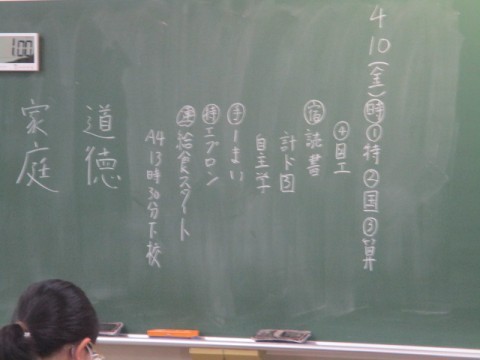 4
10(金)時①特②国③算
④図工
宿読書
計ド③
自主学
手1まい
持エプロン
連給食スタート
A4 13時30分下校
道徳
家庭
100